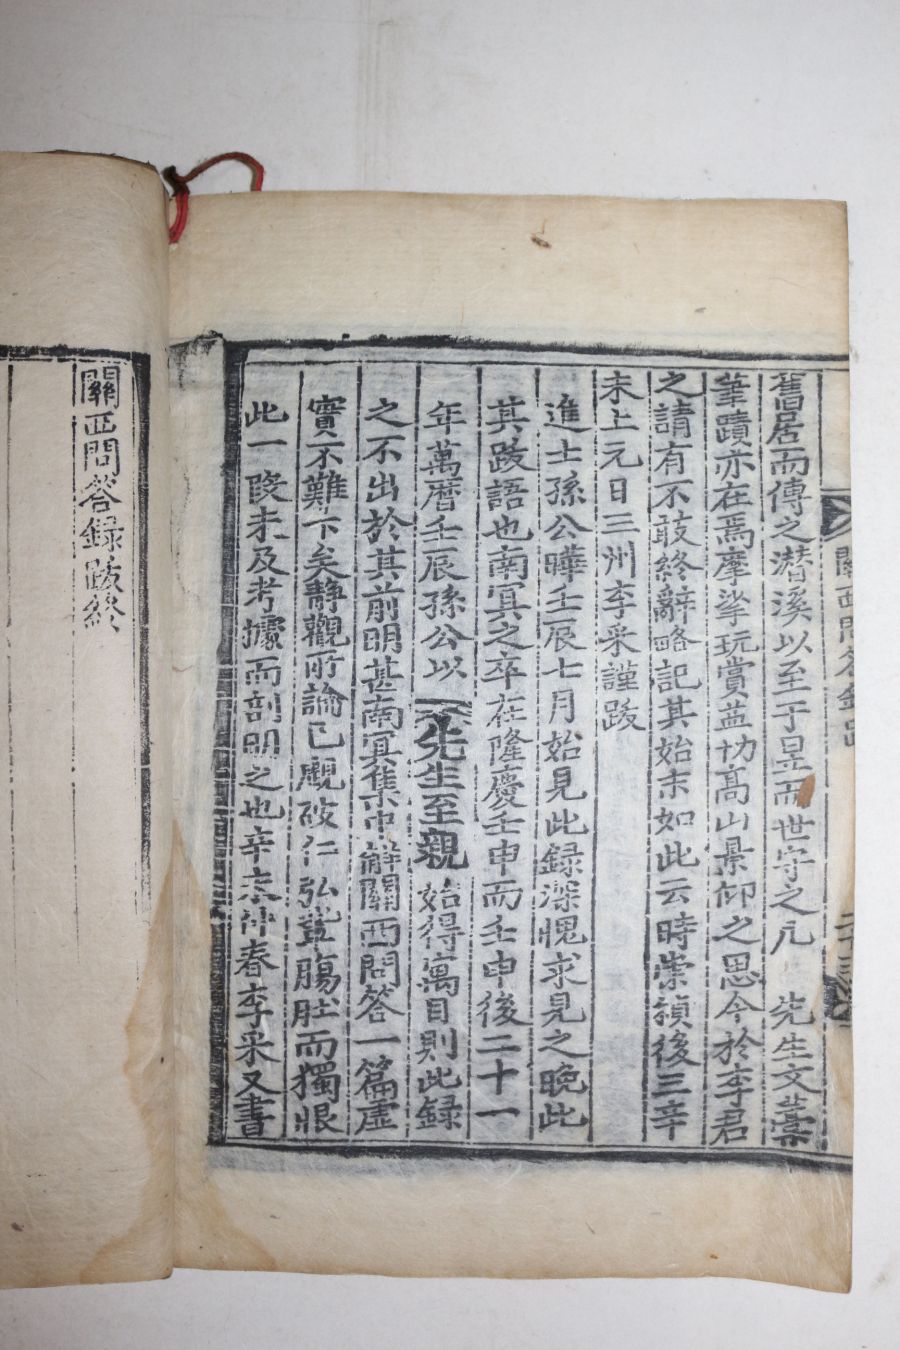 舊居而傳之潜溪以至于昱而世守之凡 先生文藁
筆蹟亦在焉摩挲玩賞益切高山景仰之思今於李君
之請有不敢終辭略記其始末如此云時崇禎後三辛
未上元日三州李采謹跋
進士孫公曄壬辰七月始見此録深愧求見之晚此
其跋語也南冥之卒在隆慶壬申而壬申後二十一
年萬曆壬辰孫公以 先生至親始得寓目則此録
之不出於其前明甚南冥集中觧關西問答一篇虛
實不難下矣靜觀所論已覷破仁弘 腸肚而獨恨
此一段未及考據而剖明之也辛未仲春李采又書
關西問答録跋終
關西問答録